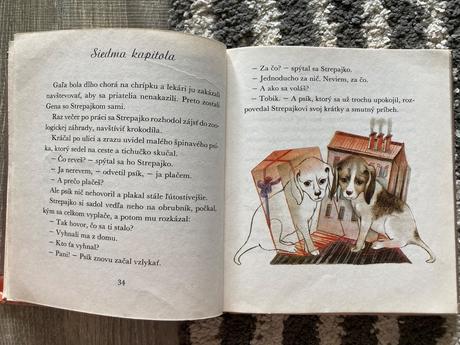 Siedma kapitola
Gaľa bola dlho chorá na chrípku a lekári ju zakázali
navštevovať, aby sa priatelia nenakazili. Preto zostali
Gena so Strepajkom sami.
Raz večer po práci sa Strepajko rozhodol zájsť do zoo-
logickej záhrady, navštíviť krokodíla.
Kráčal po ulici a zrazu uvidel malého špinavého psí-
ka, ktorý sedel na ceste a tichučko skučal.
– Čo reveš? – spýtal sa ho Strepajko.
– Ja nerevem, – odvetil psík, – ja plačem.
– A prečo plačeš?
Ale psík nič nehovoril a plakal stále ľútostivejšie.
Strepajko si sadol vedľa neho na obrubník, počkal,
kým sa celkom vyplače, a potom mu rozkázal:
– Tak hovor, čo sa ti stalo?
– Vyhnali ma z domu.
– Kto ťa vyhnal?
– Pani! – Psík znovu začal vzlykať.
34
– Za čo? – spýtal sa Strepajko.
– Jednoducho za nič. Neviem, za čo.
– A ako sa voláš?
– Tobik. – A psík, ktorý sa už trochu upokojil, roz-
povedal Strepajkovi svoj krátky a smutný príbeh.